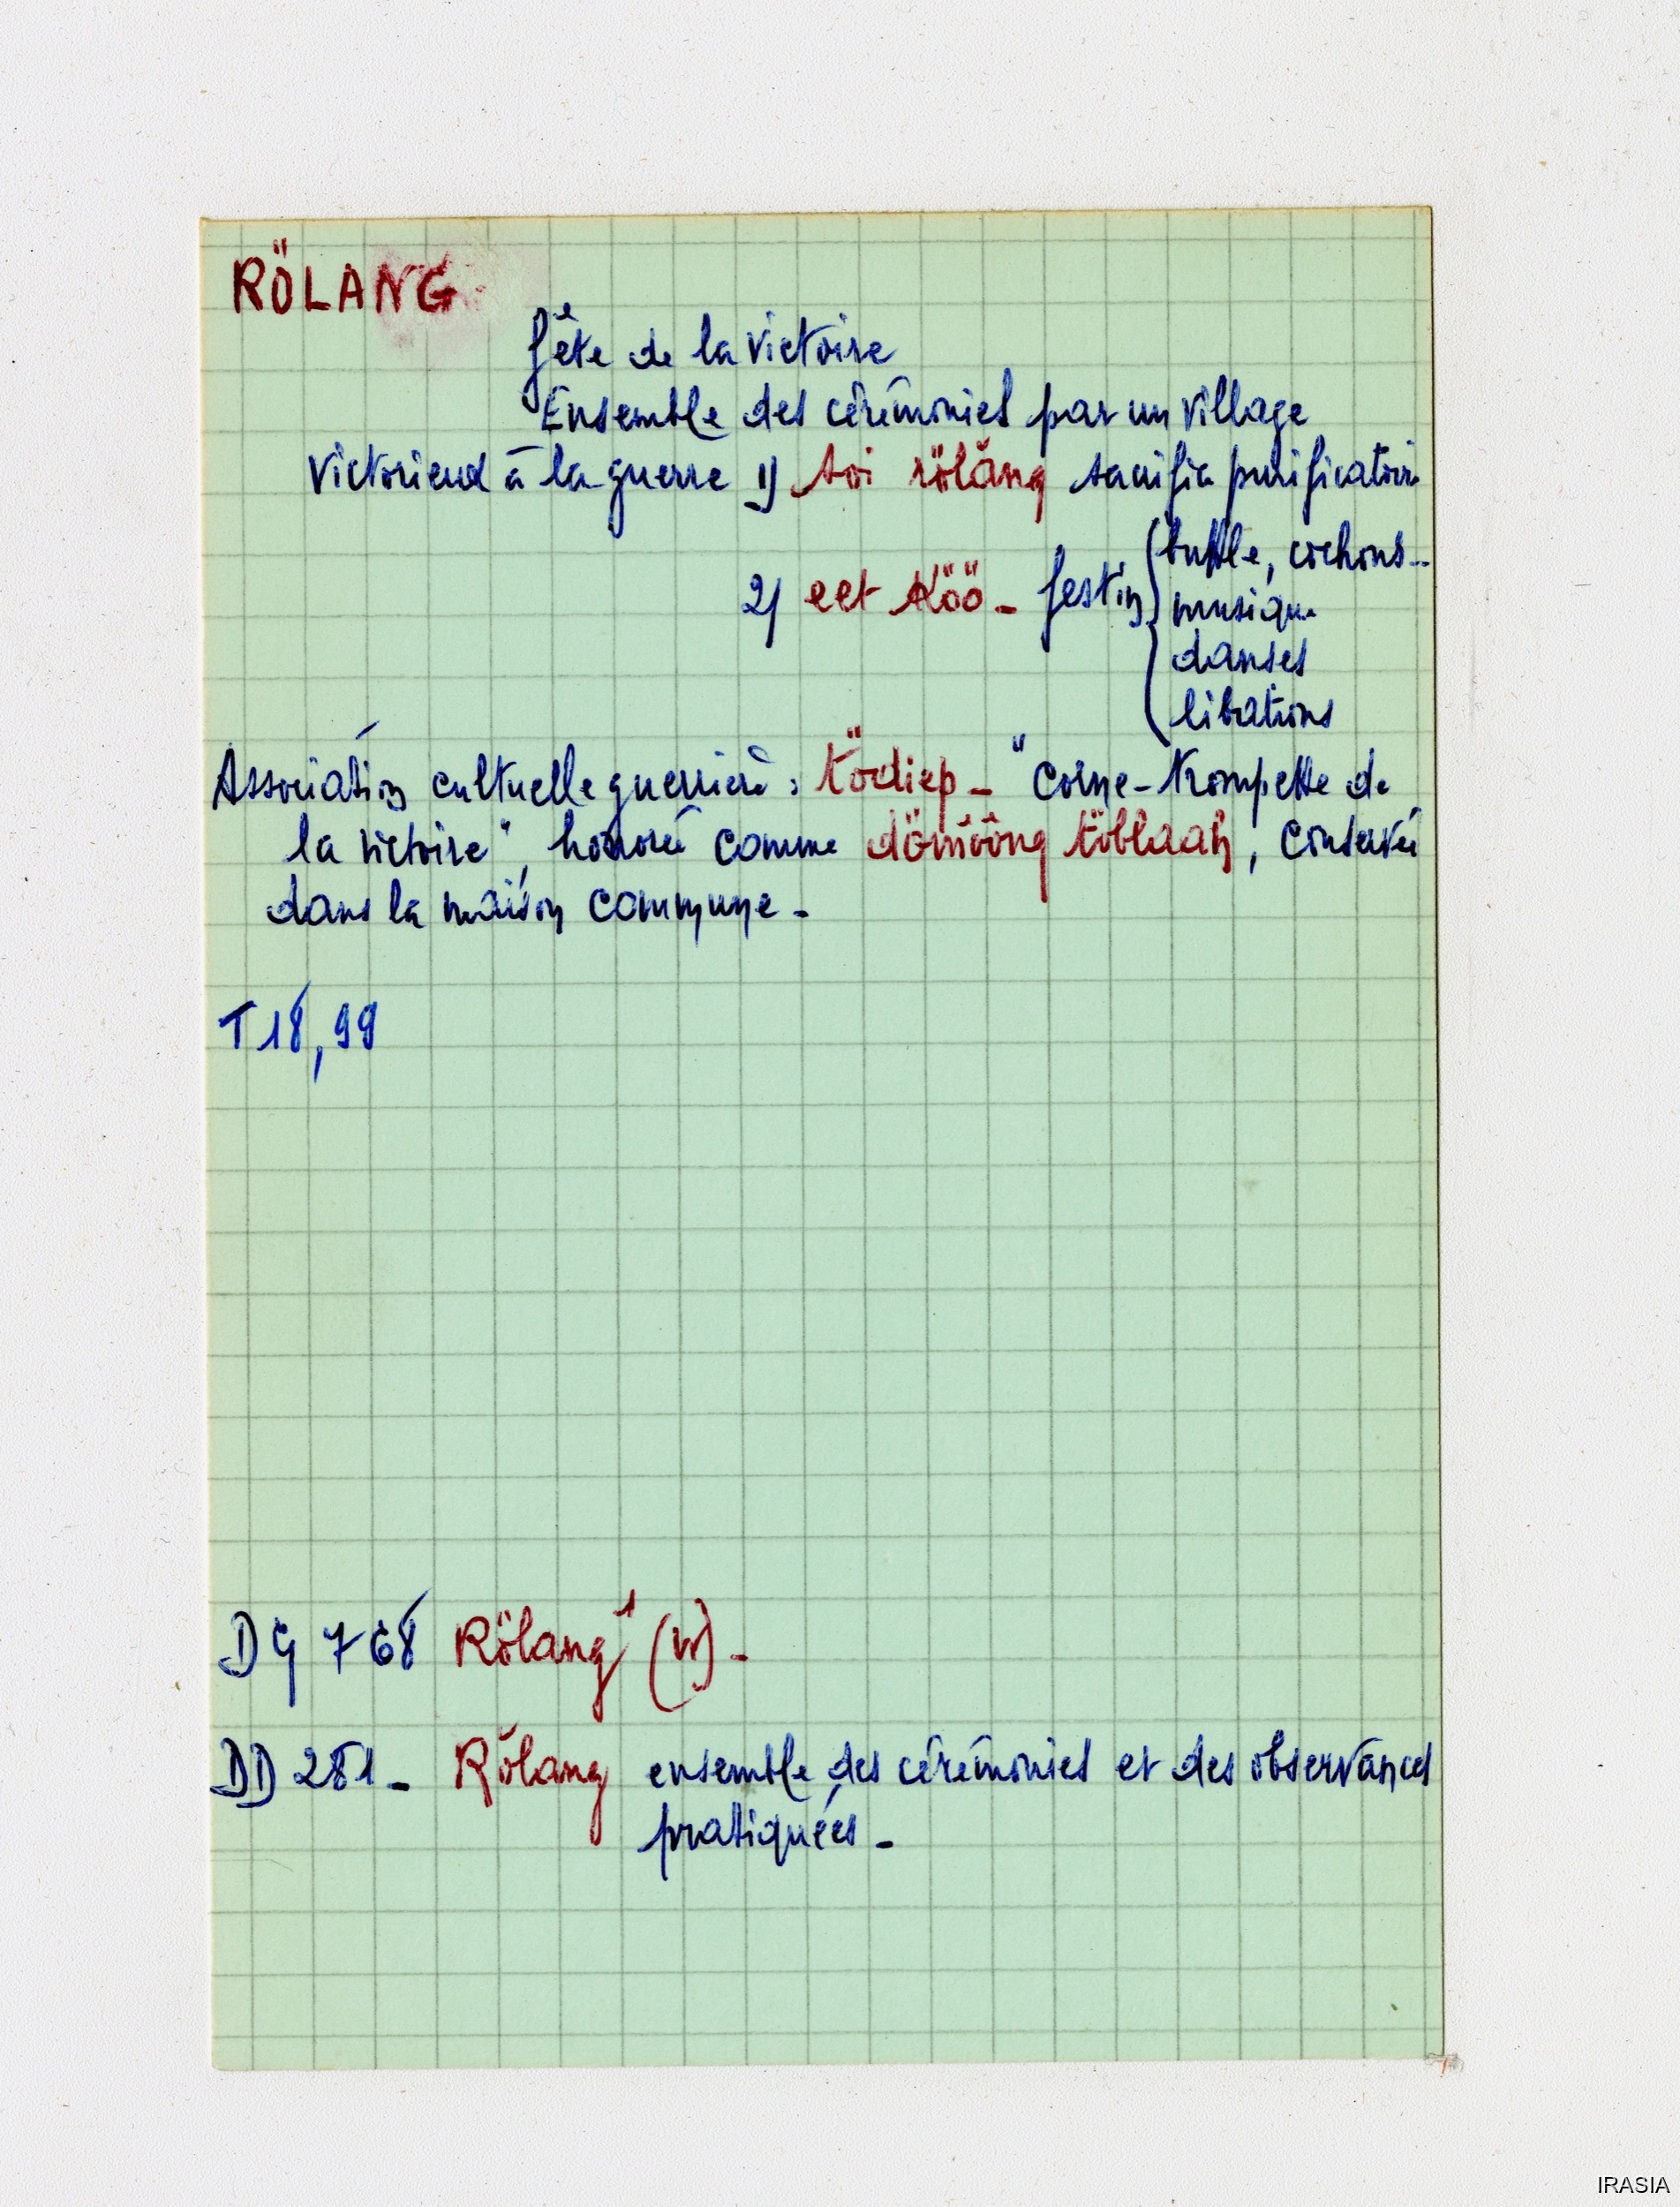 RÖLANG
fête de la victoire
Ensemble des cérémonies par un village
victorieux à la guerre 1) soi röláng sacrifice purificatoire
2) eet köö - festin { buffle, cochons..
musique
danses
libations
Association cultuelle guerrière : tödiep - "corne-trompette de
la victoire", honorée comme dömöông töblaah, conservée
dans la maison commune -
T 18, 99
DG 768 Rölang¹ (vr) -
DD 281 - Rölang ensemble des cérémonies et des observances
pratiquées -
IRASIA